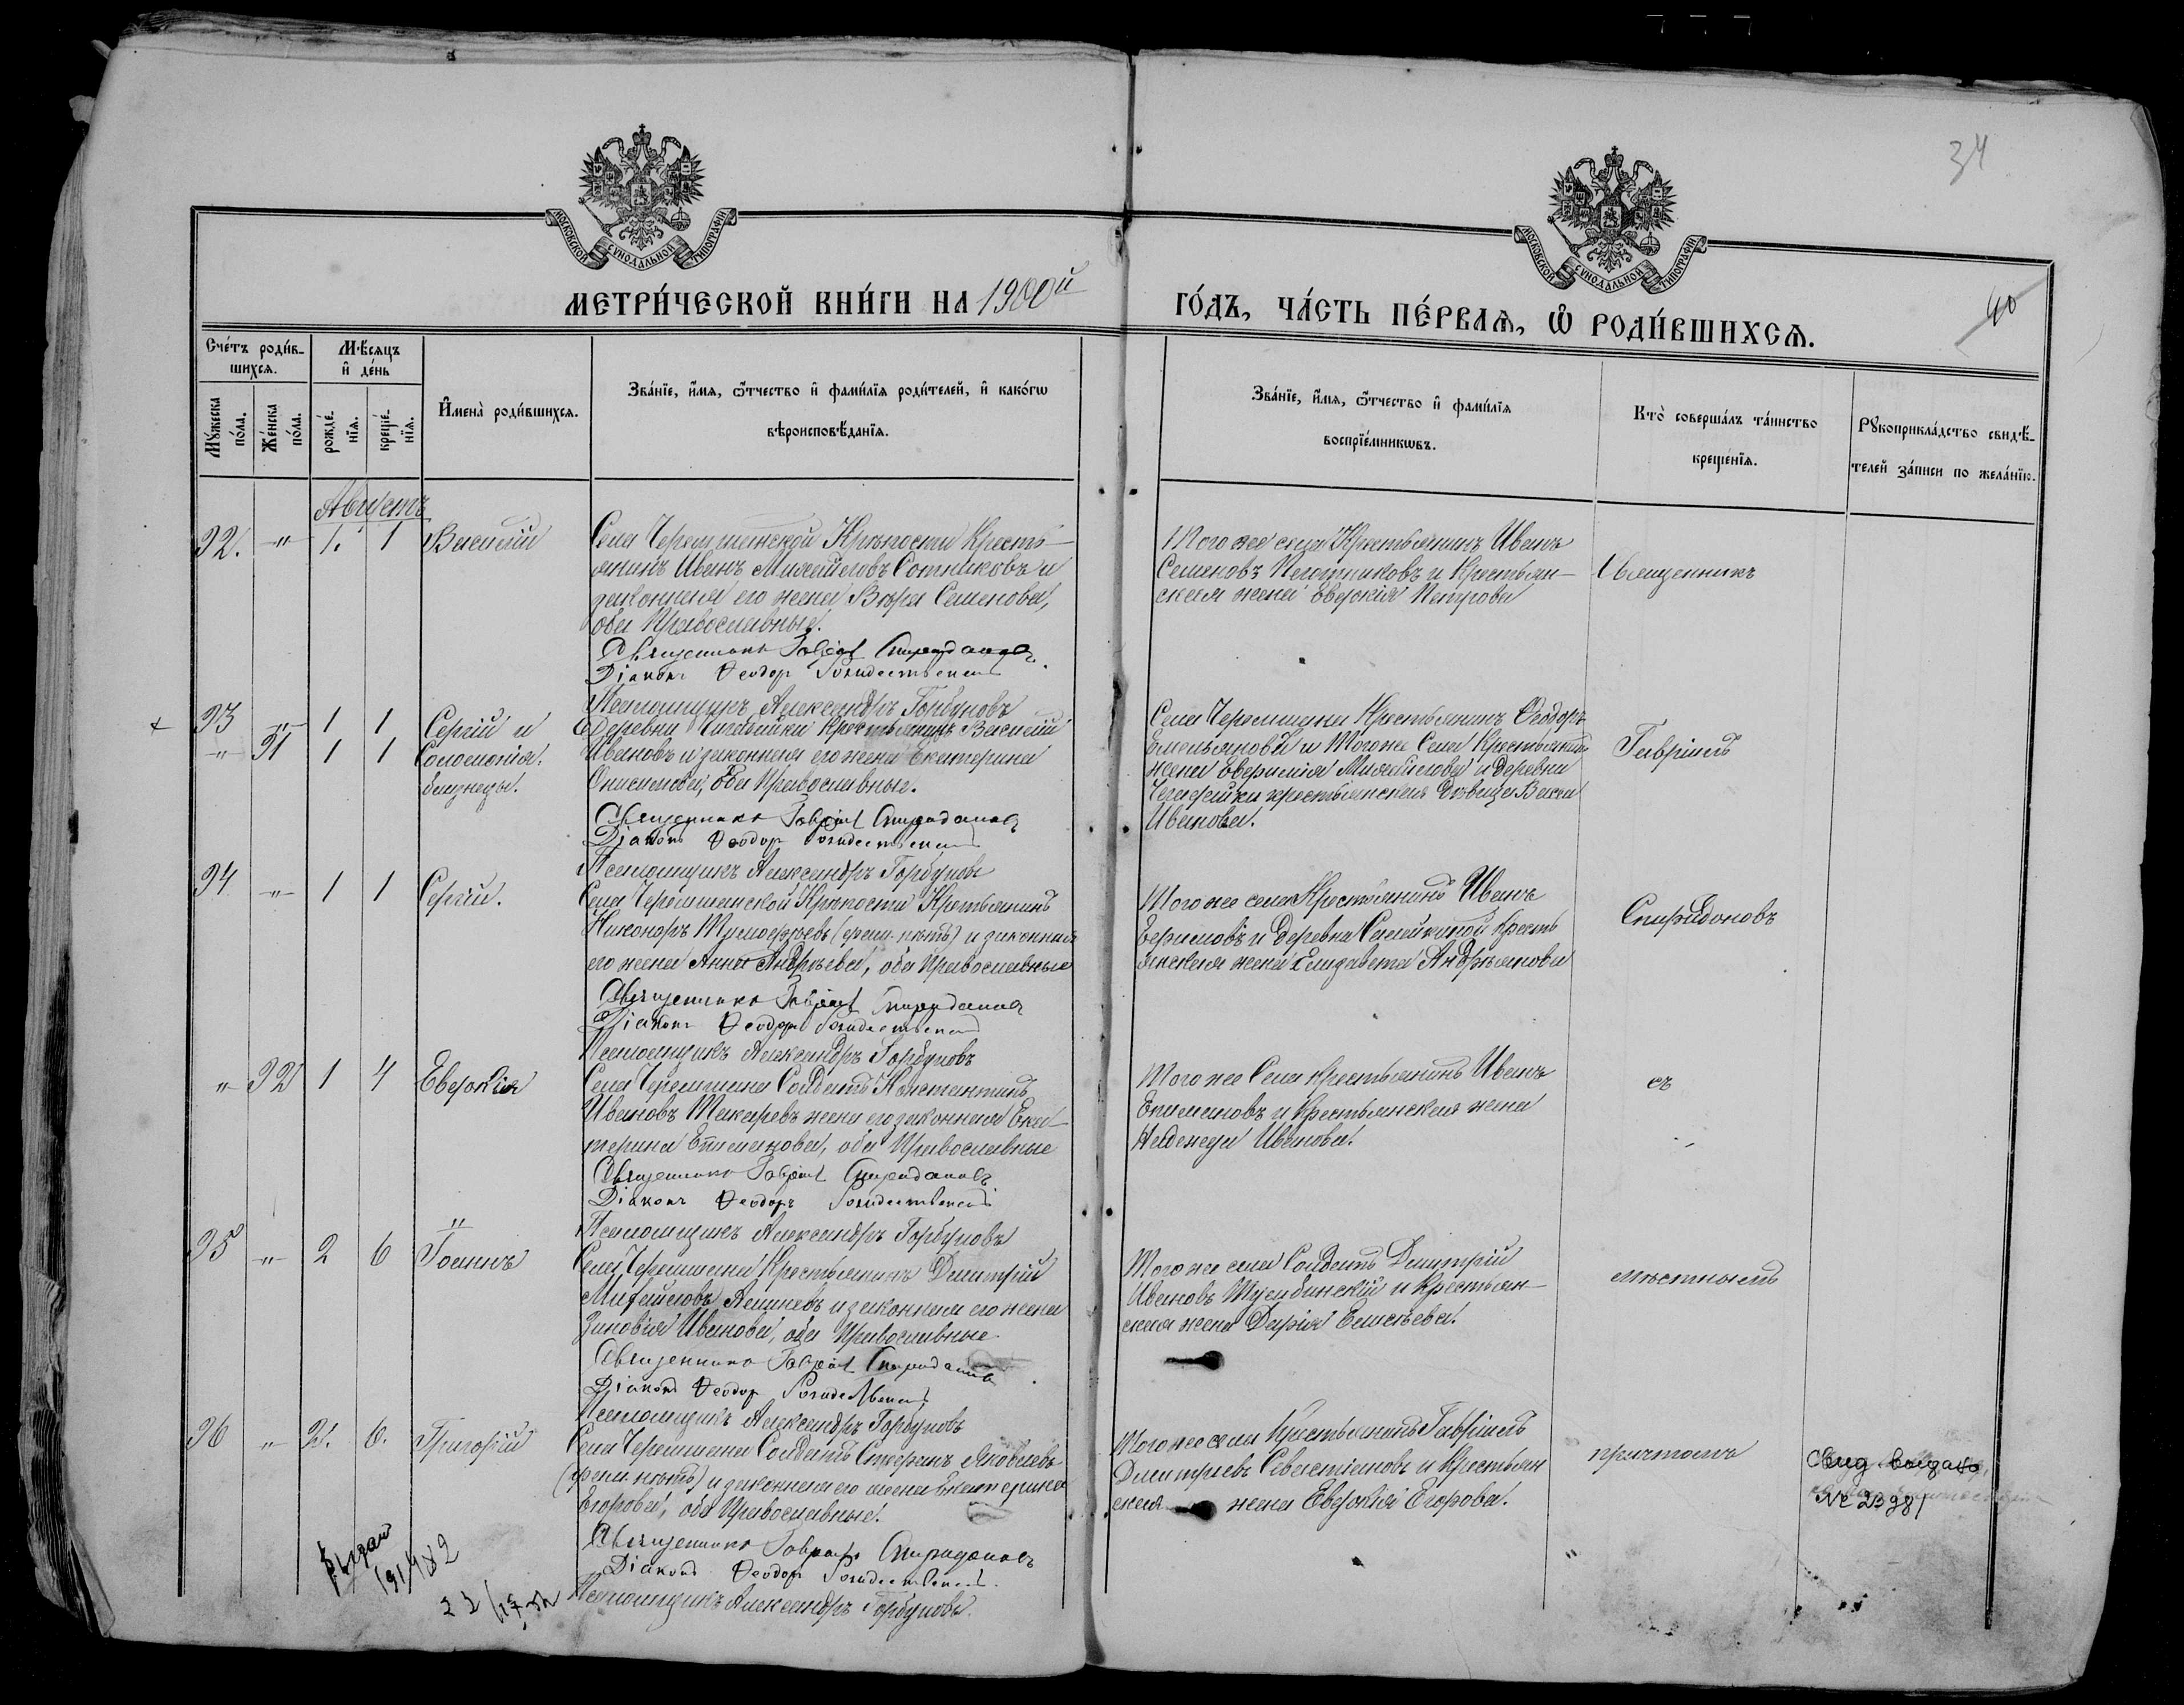 34
МОСКОВСКОЙ СѴНОДАЛЬНОЙ ТИПОГРАФІИ
МОСКОВСКОЙ СѴНОДАЛЬНОЙ ТИПОГРАФІИ
МЕТРИ́ЧЕСКОЙ КНИ́ГИ НА 1900й
ГО́ДЪ, ЧА́СТЬ ПЕ́РВАѦ, Ѡ҆ РОДИ́ВШИХСѦ.
40
Сче́тъ роди́в-
шихсѧ.
Мꙋ́жеска
по́ла.
Же́нска
по́ла.
Мѣ́сѧцъ
и҆ де́нь
рожде́-
нїѧ.
креще́-
нїѧ.
И҆мена̀ роди́вшихсѧ.
Зва́нїе, и҆́мѧ, ѻ҆́тчество и҆ фами́лїѧ роди́телей, и҆ како́гѡ
вѣроисповѣ́данїѧ.
Зва́нїе, и҆́мѧ, ѻ҆́тчество и҆ фами́лїѧ
воспрїе́мникѡвъ.
Кто̀ соверша́лъ та́инство
креще́нїѧ.
Рꙋкоприкла́дство свидѣ́-
телей за́писи по жела́нїю.
Августъ
92. " 1. 1 Василій
Села Черемшанской Крѣпости Кресть-
янинъ Иванъ Михайловъ Сотниковъ и
законная его жена Вѣра Семенова,
оба Православные.
Священникъ Гавріилъ Спиридоновъ
Діаконъ Ѳеодоръ Рождественскій
Псаломщикъ Александръ Горбуновъ
Того же села Крестьянинъ Иванъ
Семеновъ Плотниковъ и Крестьян-
ская жена Евдокія Петрова
Священникъ
93 " 1 1 Сергій и
" 91 1 1 Соломонія.
близнецы.
Деревни Крестьянинъ Василій
Ивановъ и законная его жена Екатерина
Онисимова, оба Православные.
Священникъ Гавріилъ Спиридоновъ
Діаконъ Ѳеодоръ Рождественскій
Псаломщикъ Александръ Горбуновъ
Села Черемшана Крестьянинъ Ѳеодоръ
Емельяновъ и Тогоже Села Крестьянск.
жена Евфимія Михайлова и деревни
крестьянская Дѣвица Васса
Иванова.
Гавріилъ
94 " 1 1 Сергій.
Села Черемшанской Крѣпости Крестьянинъ
Никоноръ (фами. нѣтъ) и законная
его жена Анна Андреева, оба Православные
Священникъ Гавріилъ Спиридоновъ
Діаконъ Ѳеодоръ Рождественскій
Псаломщикъ Александръ Горбуновъ
Того же села Крестьянинъ Иванъ
Ефимовъ и деревни Кресть
янская жена Елизавета Андреянова
Спиридоновъ
" 92 1 4 Евдокія
Села Черемшана Солдатъ Константинъ
Ивановъ Макаровъ жена его законная Ека-
терина Епиманова, оба Православные
Священникъ Гавріилъ Спиридоновъ
Діаконъ Ѳеодоръ Рождественскій
Псаломщикъ Александръ Горбуновъ
Того же Села крестьянинъ Иванъ
Епимановъ и Крестьянская жена
Надежда Иванова.
съ
95 " 2 6 Іоаннъ
Села Черемшана Крестьянинъ Димитрій
Михайловъ и законная его жена
Зиновія Иванова, оба Православные
Священникъ Гавріилъ Спиридоновъ
Діаконъ Ѳеодоръ Рождественскій
Псаломщикъ Александръ Горбуновъ
Того же села Солдатъ Димитрій
Ивановъ и Крестьян-
ская жена Дарія Елисѣева.
мѣстнымъ
96 " 2. 6. Григорій
Села Черемшана Солдатъ Стефанъ Яковлевъ
(фами. нѣтъ) и законная его жена Екатерина
Егорова, оба Православные.
Священникъ Гавріилъ Спиридоновъ
Діаконъ Ѳеодоръ Рождественскій
Псаломщикъ Александръ Горбуновъ.
Того же села Крестьянинъ Гавріилъ
Димитріевъ Севастіановъ и Крестьян
ская жена Евдокія Егорова.
причтомъ
Свид. выдано
№ 23981